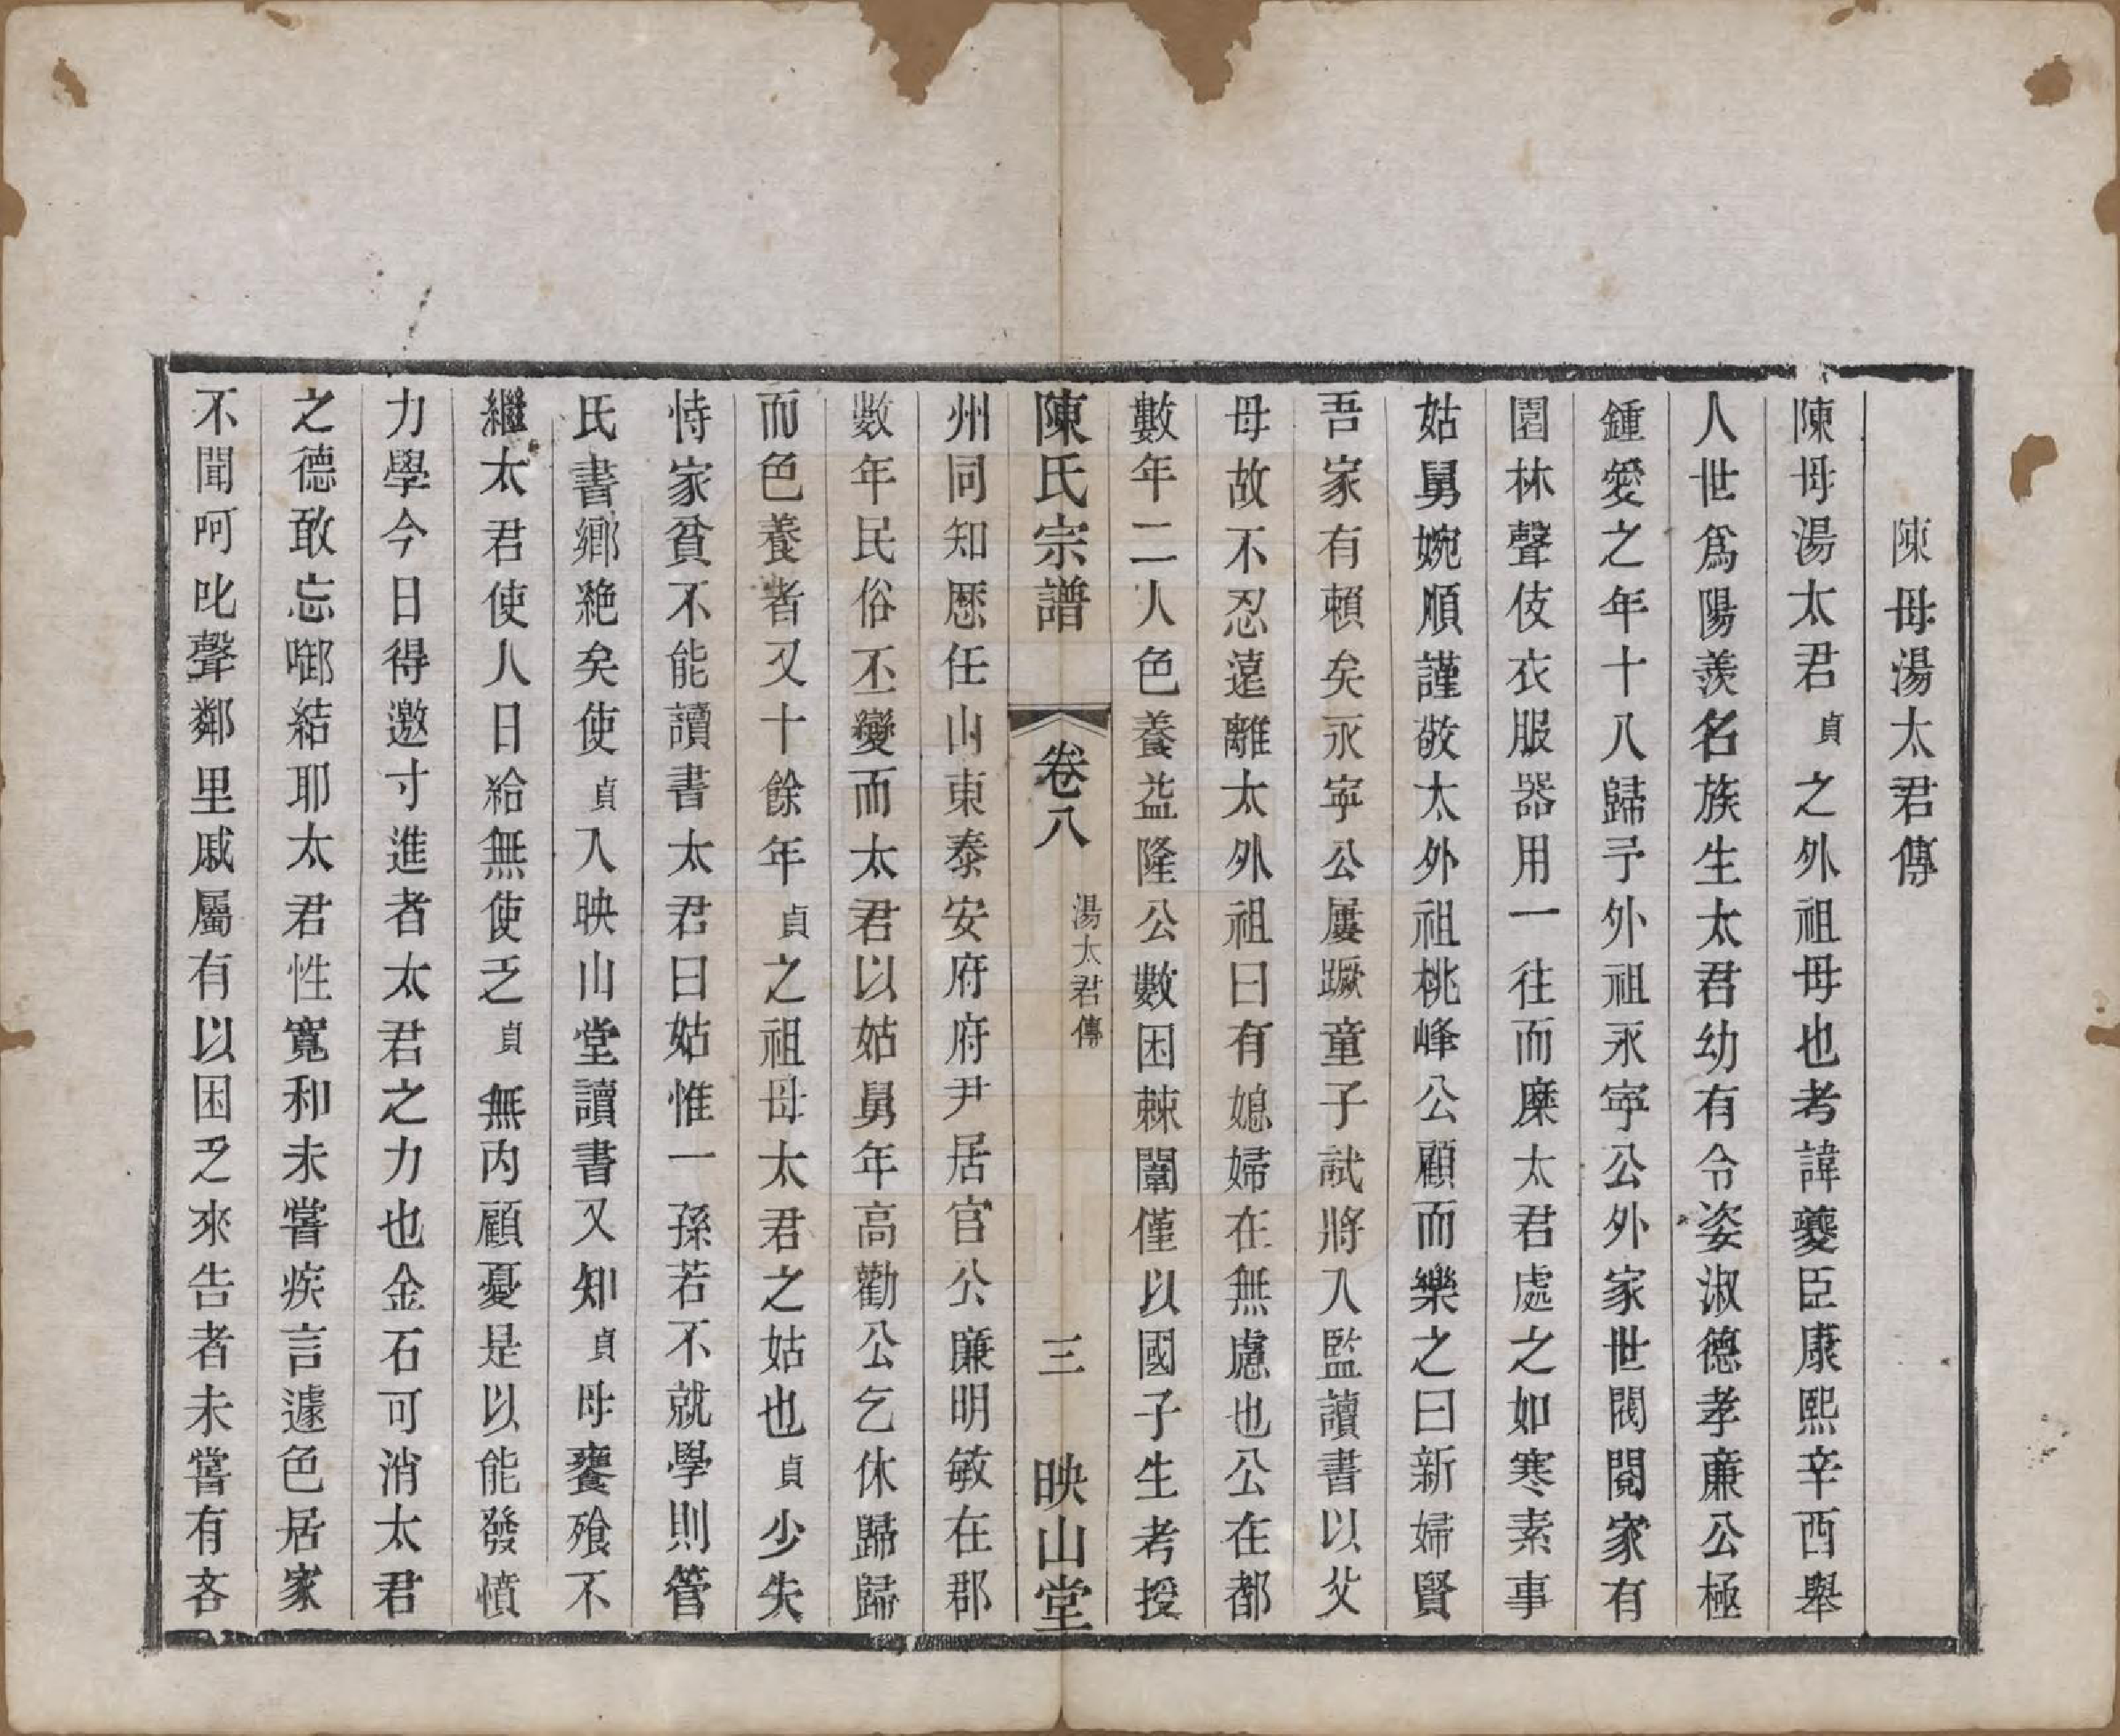 陳母湯太君傳
陳母湯太君貞之外祖母也考諱夔臣康熙辛酉舉
人世爲陽羨名族生太君幼有令姿淑德孝廉公極
鍾愛之年十八歸予外祖永寕公外家世閥閱家有
園林聲伎衣服器用一往而糜太君處之如寒素事
姑舅婉順謹敬太外祖桃峰公顧而樂之曰新婦賢
吾家有賴矣永寕公屢蹶童子試將入監讀書以父
母故不忍遠離太外祖曰有媳婦在無慮也公在都
數年二人色養益隆公數困棘闈僅以國子生考授
陳氏宗譜 卷八 湯太君傳 三 映山堂
州同知歷任山東泰安府府尹居官公廉明敏在郡
數年民俗丕變而太君以姑舅年高勸公乞休歸歸
而色養者又十餘年貞之祖母太君之姑也貞少失
恃家貧不能讀書太君曰姑惟一孫若不就學則管
氏書鄉絕矣使貞入映山堂讀書又知貞母饔飱不
繼太君使人日給無使乏貞無内顧憂是以能發憤
力學今日得邀寸進者太君之力也金石可消太君
之德敢忘啣結耶太君性寬和未嘗疾言遽色居家
不聞呵叱聲鄰里戚屬有以困乏來告者未嘗有吝